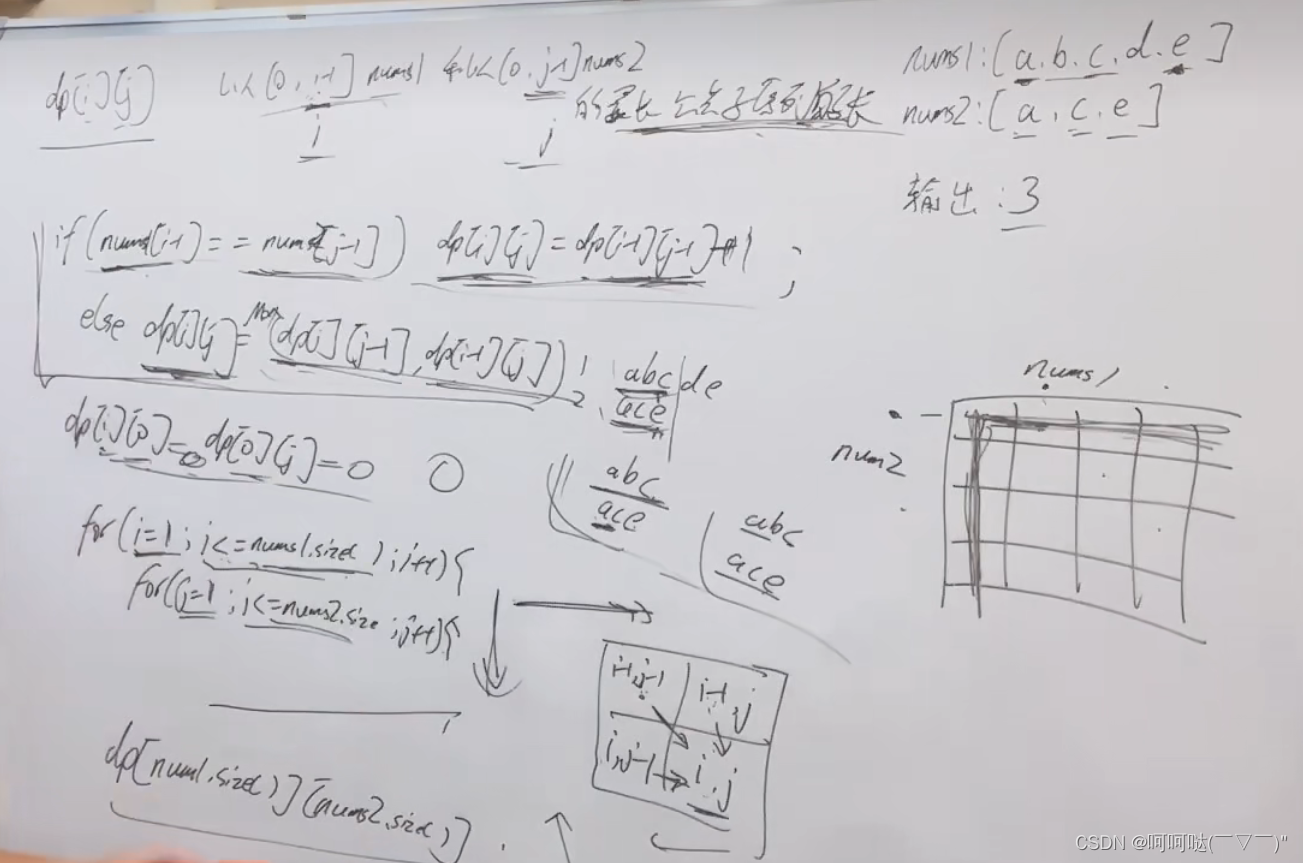 dp[i][j] 以 [0, i-1] nums1 和以 [0, j-1] nums2
i j 的最长公共子序列长
nums1: [a.b.c.d.e]
nums2: [a.c.e]
输出:3
if (nums1[i-1] == nums2[j-1]) dp[i][j] = dp[i-1][j-1]+1;
else dp[i][j] = Max(dp[i][j-1], dp[i-1][j]);
1
2
abc|de
ace
dp[i][0]=0 dp[0][j]=0 0
abc
ace
abc
ace
for (i=1; i<=nums1.size(); i++){
for(j=1; j<=nums2.size; j++){
nums1
num2
i-1,j-1 i-1,j
i,j-1 i,j
dp[num1.size()][nums2.size()]
CSDN @呵呵哒(￣▽￣)"